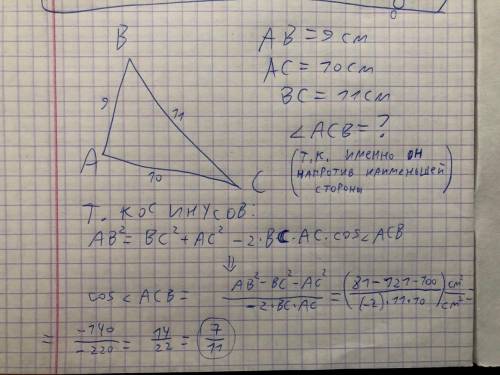 B
AB = 9 см
AC = 10 см
BC = 11 см
9
11
∠ACB = ?
(т.к. именно он
напротив наименьшей
стороны)
A
10
C
Т. косинусов:
AB² = BC² + AC² - 2·BC·AC·cos∠ACB
⇓
cos∠ACB = \frac{AB² - BC² - AC²}{-2·BC·AC} = (\frac{81-121-100}{(-2)·11·10}) \frac{см²}{см²} =
= \frac{-140}{-220} = \frac{14}{22} = \frac{7}{11}